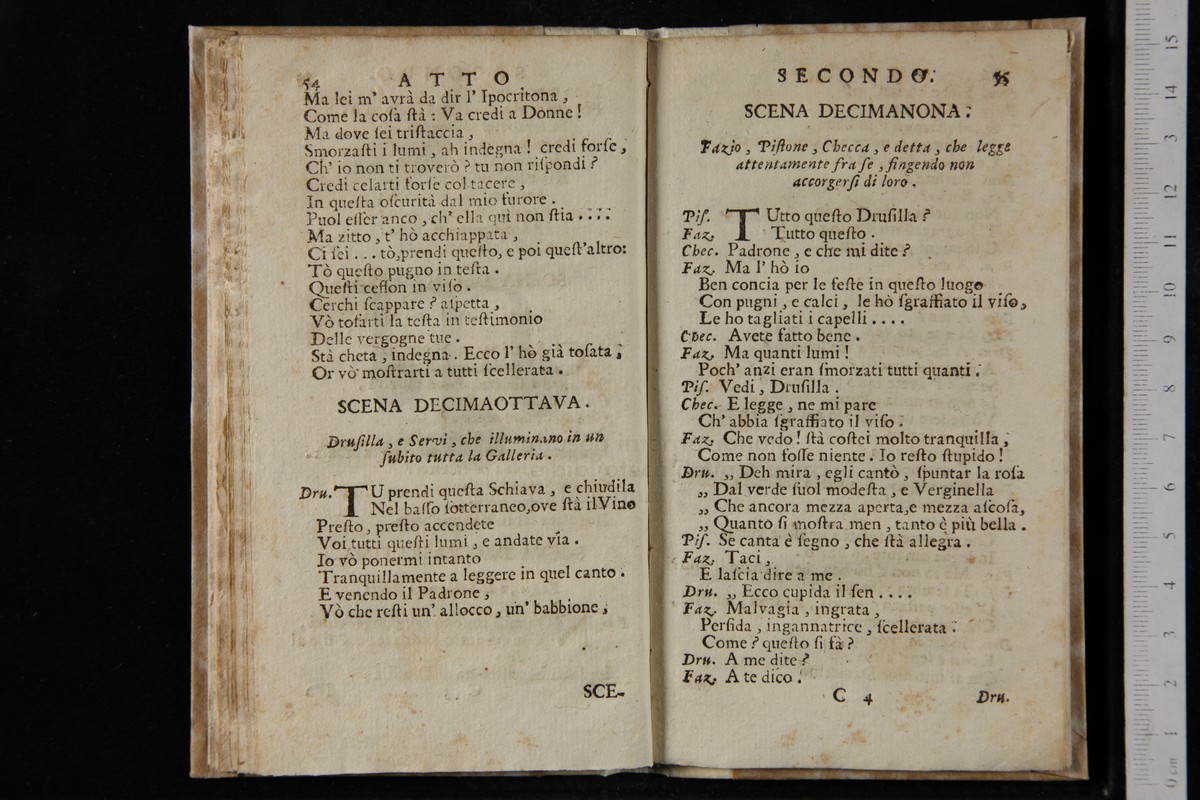 54 ATTO
Ma lei m' avrà da dir l' Ipocritona ,
Come la coſa ſtà : Va credi a Donne !
Ma dove ſei triſtaccia ,
Smorzaſti i lumi , ah indegna ! credi forſe ,
Ch' io non ti troverò ? tu non riſpondi ?
Credi celarti forſe col tacere ,
In queſta oſcurità dal mio furore .
Puol eſſer anco , ch' ella quì non ſtia . . . .
Ma zitto , t' hò acchiappata ,
Ci ſei . . . tò,prendi queſto, e poi queſt'altro:
Tò queſto pugno in teſta .
Queſti ceffon in viſo .
Cerchi ſcappare ? aſpetta ,
Vò toſarti la teſta in teſtimonio
Delle vergogne tue .
Stà cheta , indegna . Ecco l' hò già toſata ;
Or vò moſtrarti a tutti ſcellerata .
SCENA DECIMAOTTAVA .
Druſilla , e Servi , che illuminano in un
ſubito tutta la Galleria .
Dru. TU prendi queſta Schiava , e chiudila
Nel baſſo ſotterraneo,ove ſtà il Vino
Preſto , preſto accendete
Voi tutti queſti lumi , e andate via .
Io vò ponermi intanto
Tranquillamente a leggere in quel canto .
E venendo il Padrone ,
Vò che reſti un' allocco , un' babbione ,
SCE-
SECONDO. 55
SCENA DECIMANONA .
Fazio , Piſtone , Checca , e detta , che legge
attentamente fra ſe , fingendo non
accorgerſi di loro .
Piſ. TUtto queſto Druſilla ?
Faz. Tutto queſto .
Chec. Padrone , e che mi dite ?
Faz. Ma l' hò io
Ben concia per le feſte in queſto luogo
Con pugni , e calci , le hò ſgraffiato il viſo ,
Le ho tagliati i capelli . . . .
Chec. Avete fatto bene .
Faz. Ma quanti lumi !
Poch' anzi eran ſmorzati tutti quanti .
Piſ. Vedi , Druſilla .
Chec. E legge , ne mi pare
Ch' abbia ſgraffiato il viſo .
Faz. Che vedo ! ſtà coſtei molto tranquilla ,
Come non foſſe niente . Io reſto ſtupido !
Dru. ,, Deh mira , egli cantò , ſpuntar la roſa
,, Dal verde ſuol modeſta , e Verginella
,, Che ancora mezza aperta,e mezza aſcoſa,
,, Quanto ſi moſtra men , tanto è più bella .
Piſ. Se canta è ſegno , che ſtà allegra .
Faz. Taci ,
E laſcia dire a me .
Dru. ,, Ecco cupida il ſen . . . .
Faz. Malvagia , ingrata ,
Perfida , ingannatrice , ſcellerata .
Come ? queſto ſi fà ?
Dru. A me dite ?
Faz. A te dico .
C 4 Dru.
0 cm 1 2 3 4 5 6 7 8 9 10 11 12 13 14 15